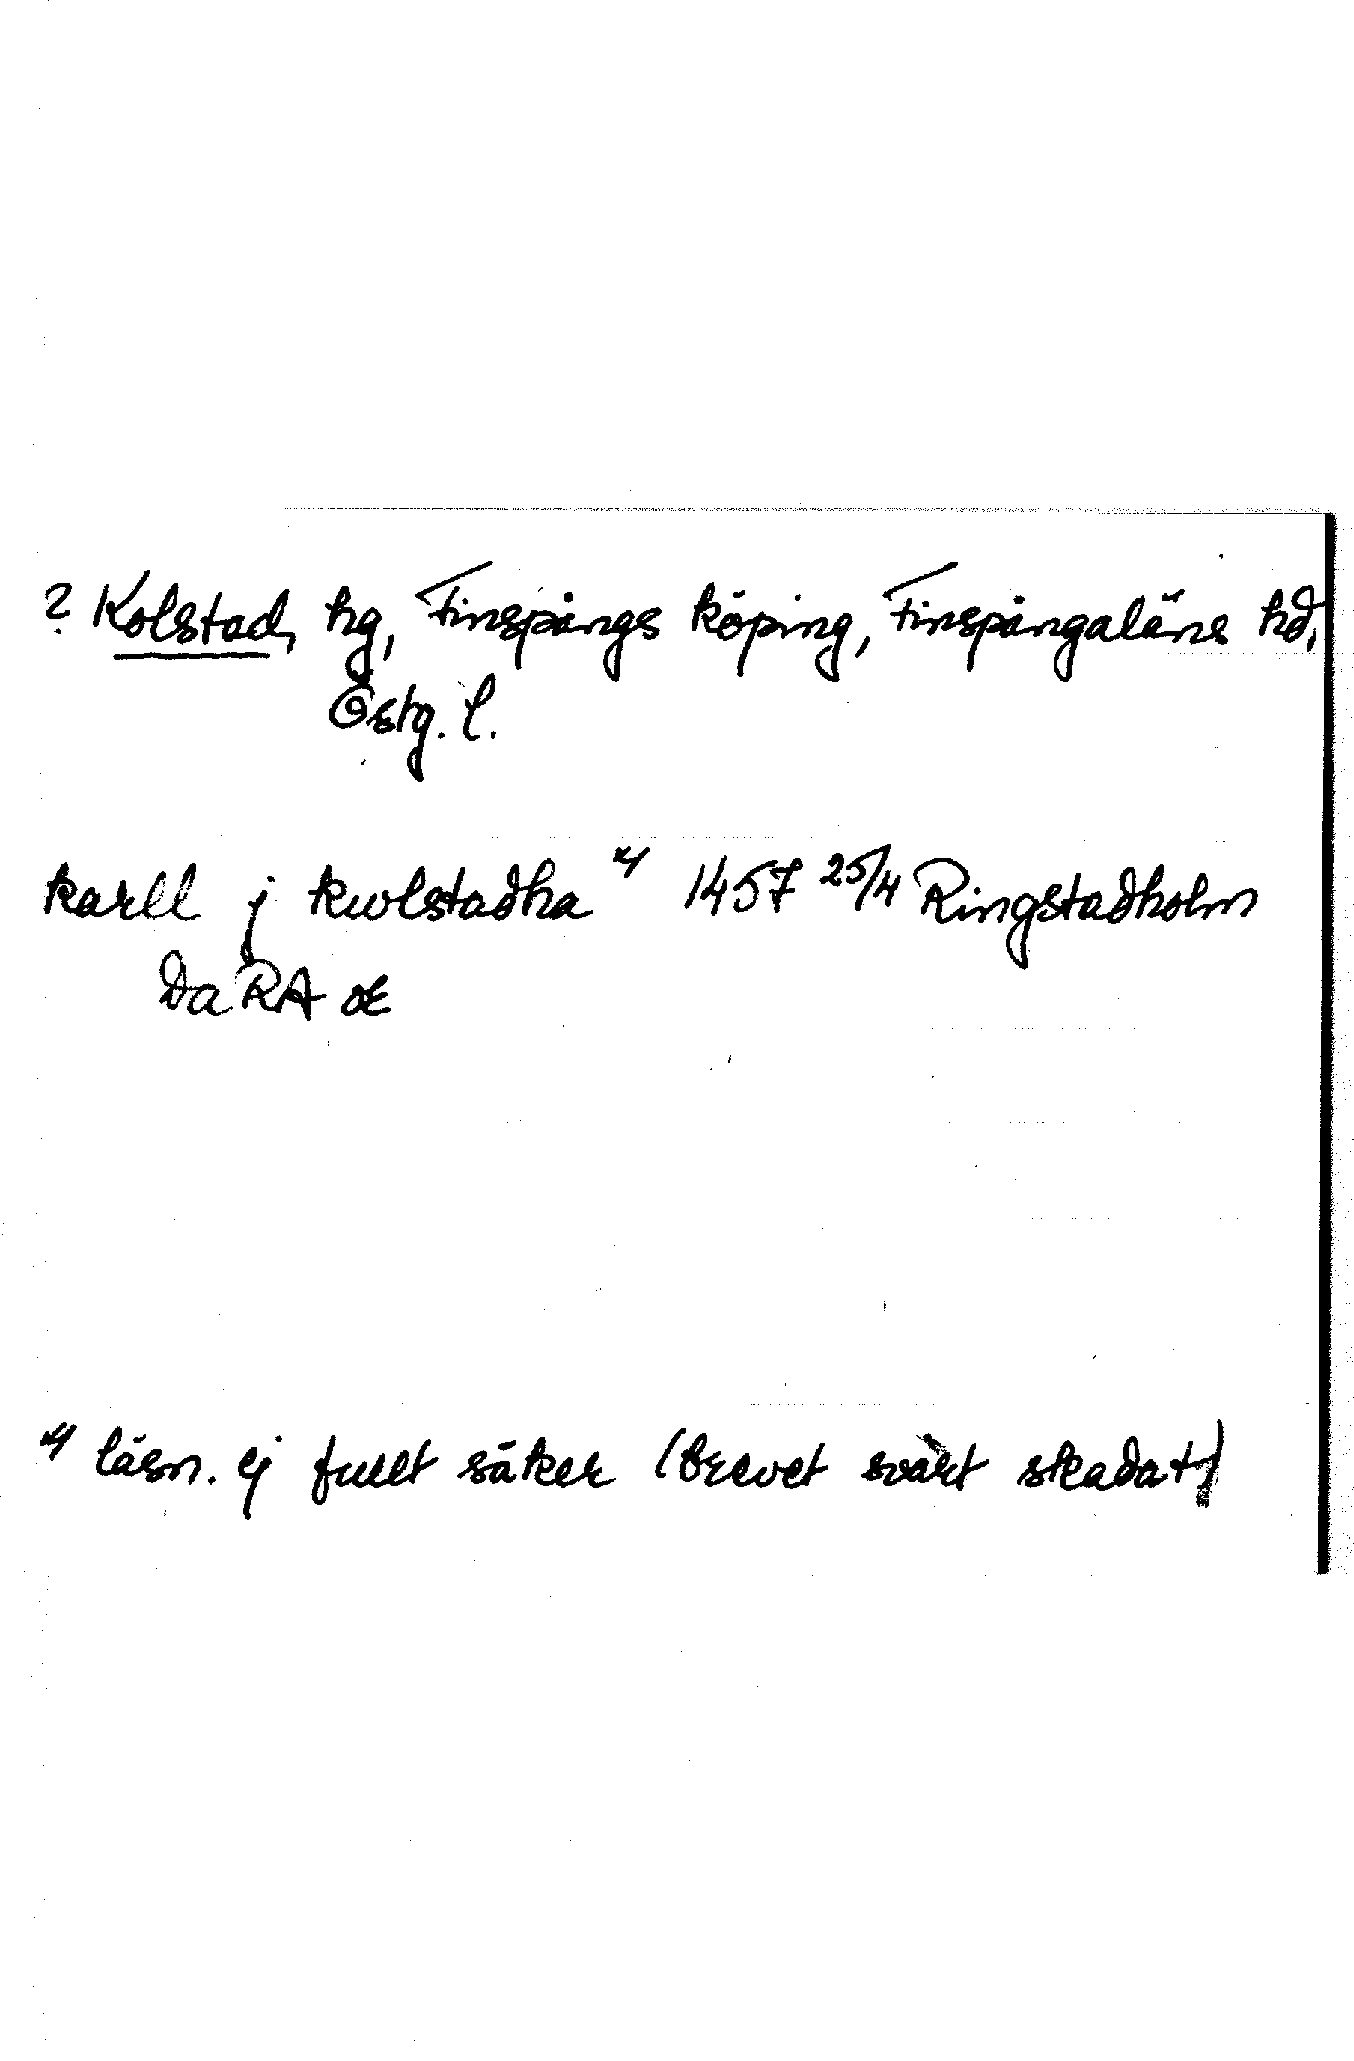 ? Kolstad, hg, Finspångs köping, Finspångaläns hd,
Östg. l.
karll j kwlstadha x) 1457 25/4 Ringstadholm
Da RA or
x) läsn. ej fullt säker (brevet svårt skadat)